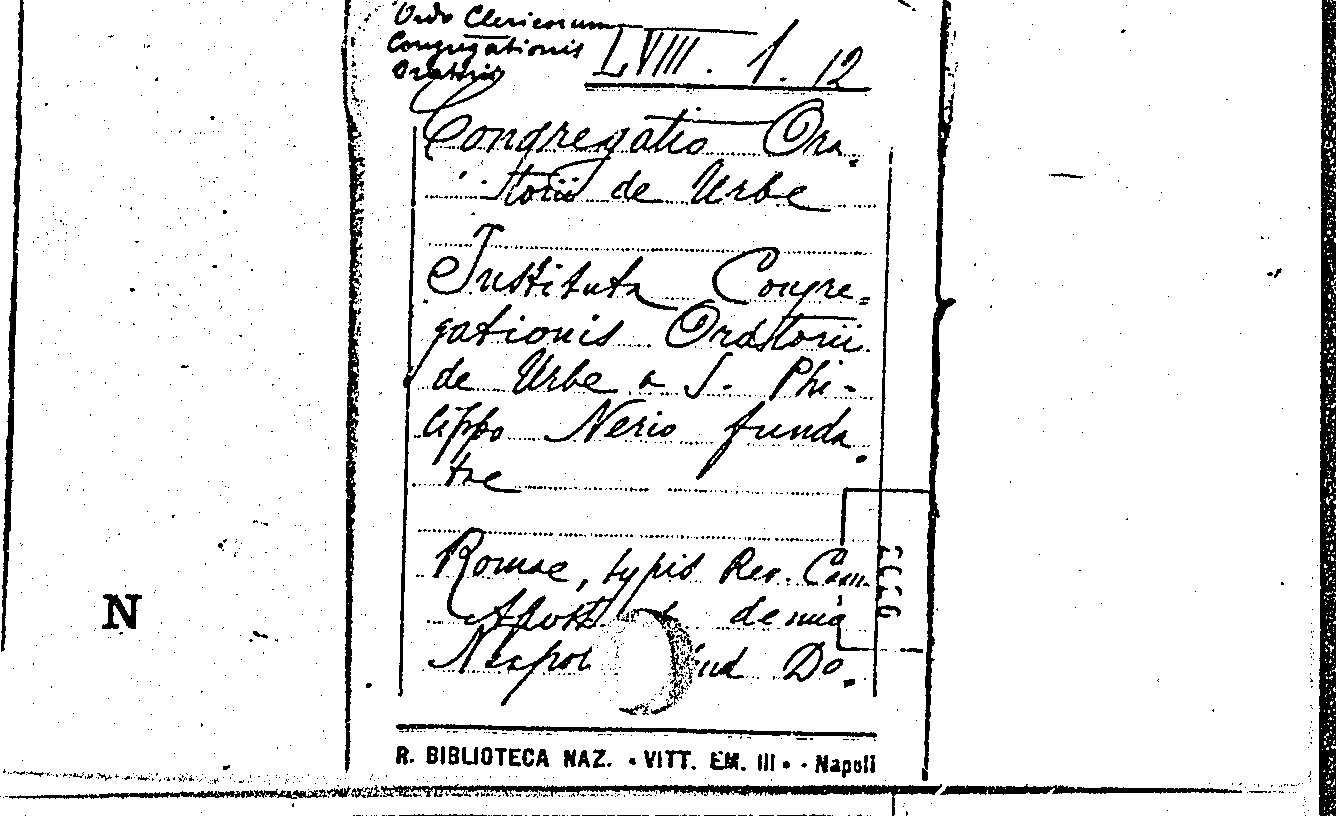 Ordo Clericorum
Congregationis
Oratorii
LVIII. 1. 12
Congregatio Ora-
torii de Urbe
Instituta Congre=
gationis Oratorii
de Urbe a S. Phi-
lippo Nerio funda
tae
Romae, typis Rev. Cam.
Apost denuo
Neapol Do.
R. BIBLIOTECA NAZ. • VITT. EM. III • - Napoli
N